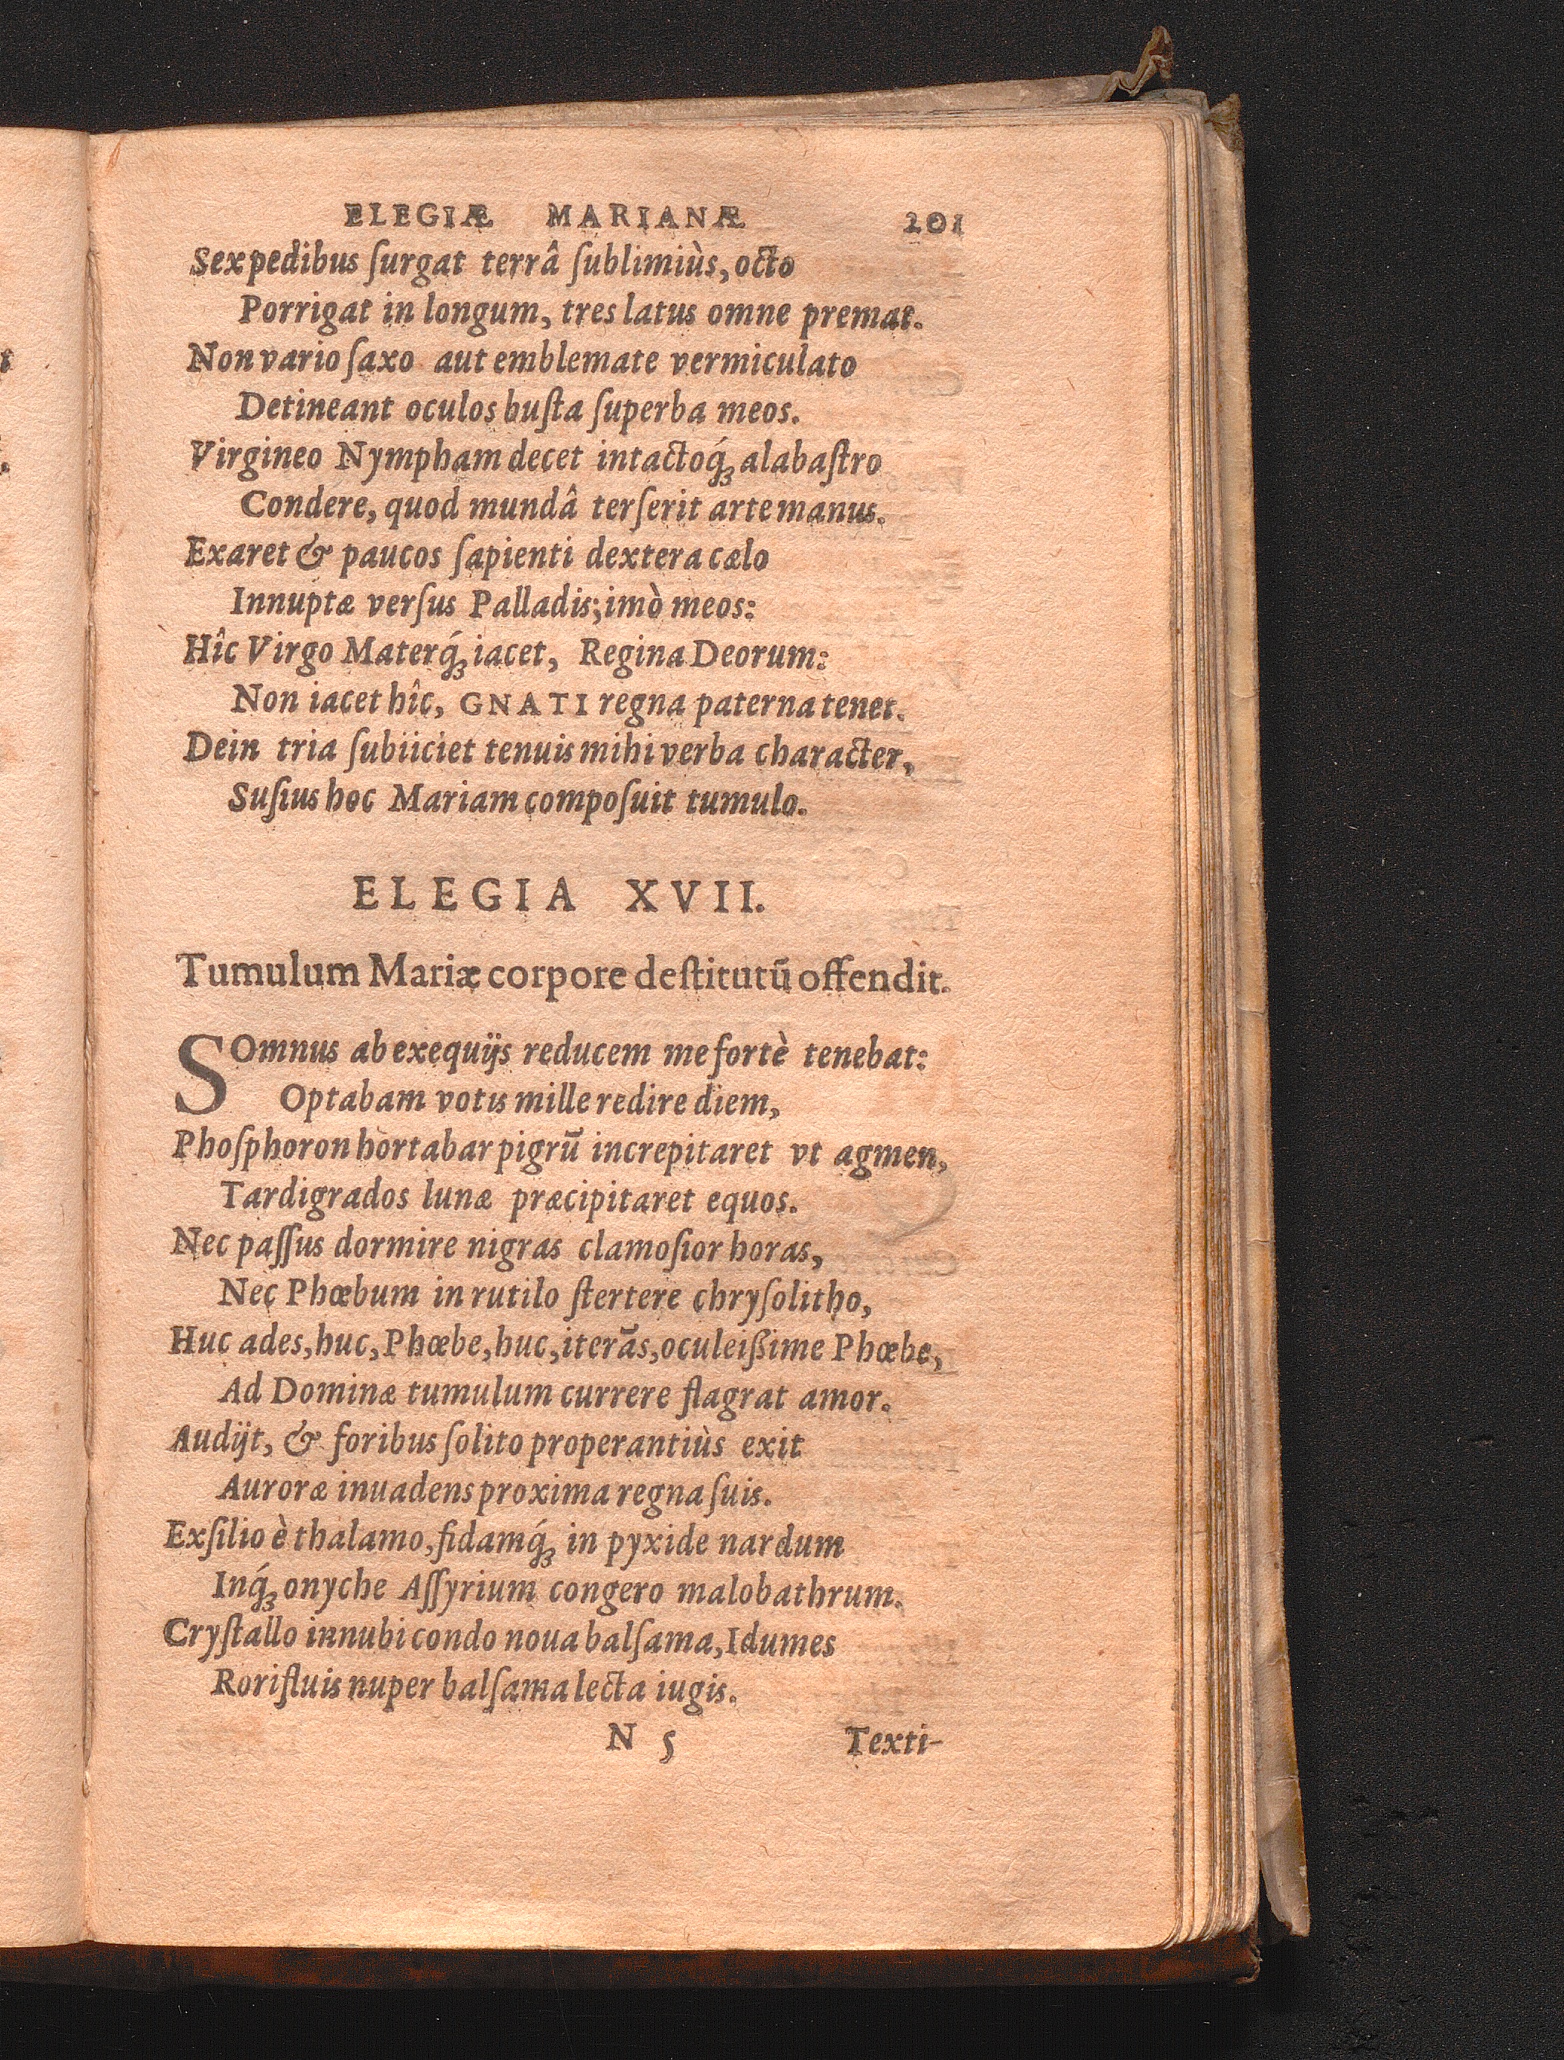 ELEGIÆ MARIANÆ 201
Sex pedibus ſurgat terrâ ſublimiùs, octo
Porrigat in longum, tres latus omne premat.
Non vario ſaxo aut emblemate vermiculato
Detineant oculos buſta ſuperba meos.
Virgineo Nympham decet intactoq́ꝫ alabaſtro
Condere, quod mundâ terſerit arte manus.
Exaret & paucos ſapienti dextera cælo
Innuptæ verſus Palladis; imò meos:
Hîc Virgo Materq́ꝫ iacet, Regina Deorum:
Non iacet hîc, GNATI regna paterna tenet.
Dein tria ſubiiciet tenuis mihi verba character,
Suſius hoc Mariam compoſuit tumulo.
ELEGIA XVII.
Tumulum Mariæ corpore deſtitutū offendit.
SOmnus ab exequijs reducem me fortè tenebat:
Optabam votis mille redire diem,
Phoſphoron hortabar pigrū increpitaret vt agmen,
Tardigrados lunæ præcipitaret equos.
Nec paſſus dormire nigras clamoſior horas,
Nec Phœbum in rutilo ſtertere chryſolitho,
Huc ades, huc, Phœbe, huc, iterās, oculeißime Phœbe,
Ad Dominæ tumulum currere flagrat amor.
Audijt, & foribus ſolito properantiùs exit
Auroræ inuadens proxima regna ſuis.
Exſilio è thalamo, fidamq́ꝫ in pyxide nardum
Inq́ꝫ onyche Aſſyrium congero malobathrum.
Cryſtallo innubi condo noua balſama, Idumes
Rorifluis nuper balſama lecta iugis.
N 5 Texti-